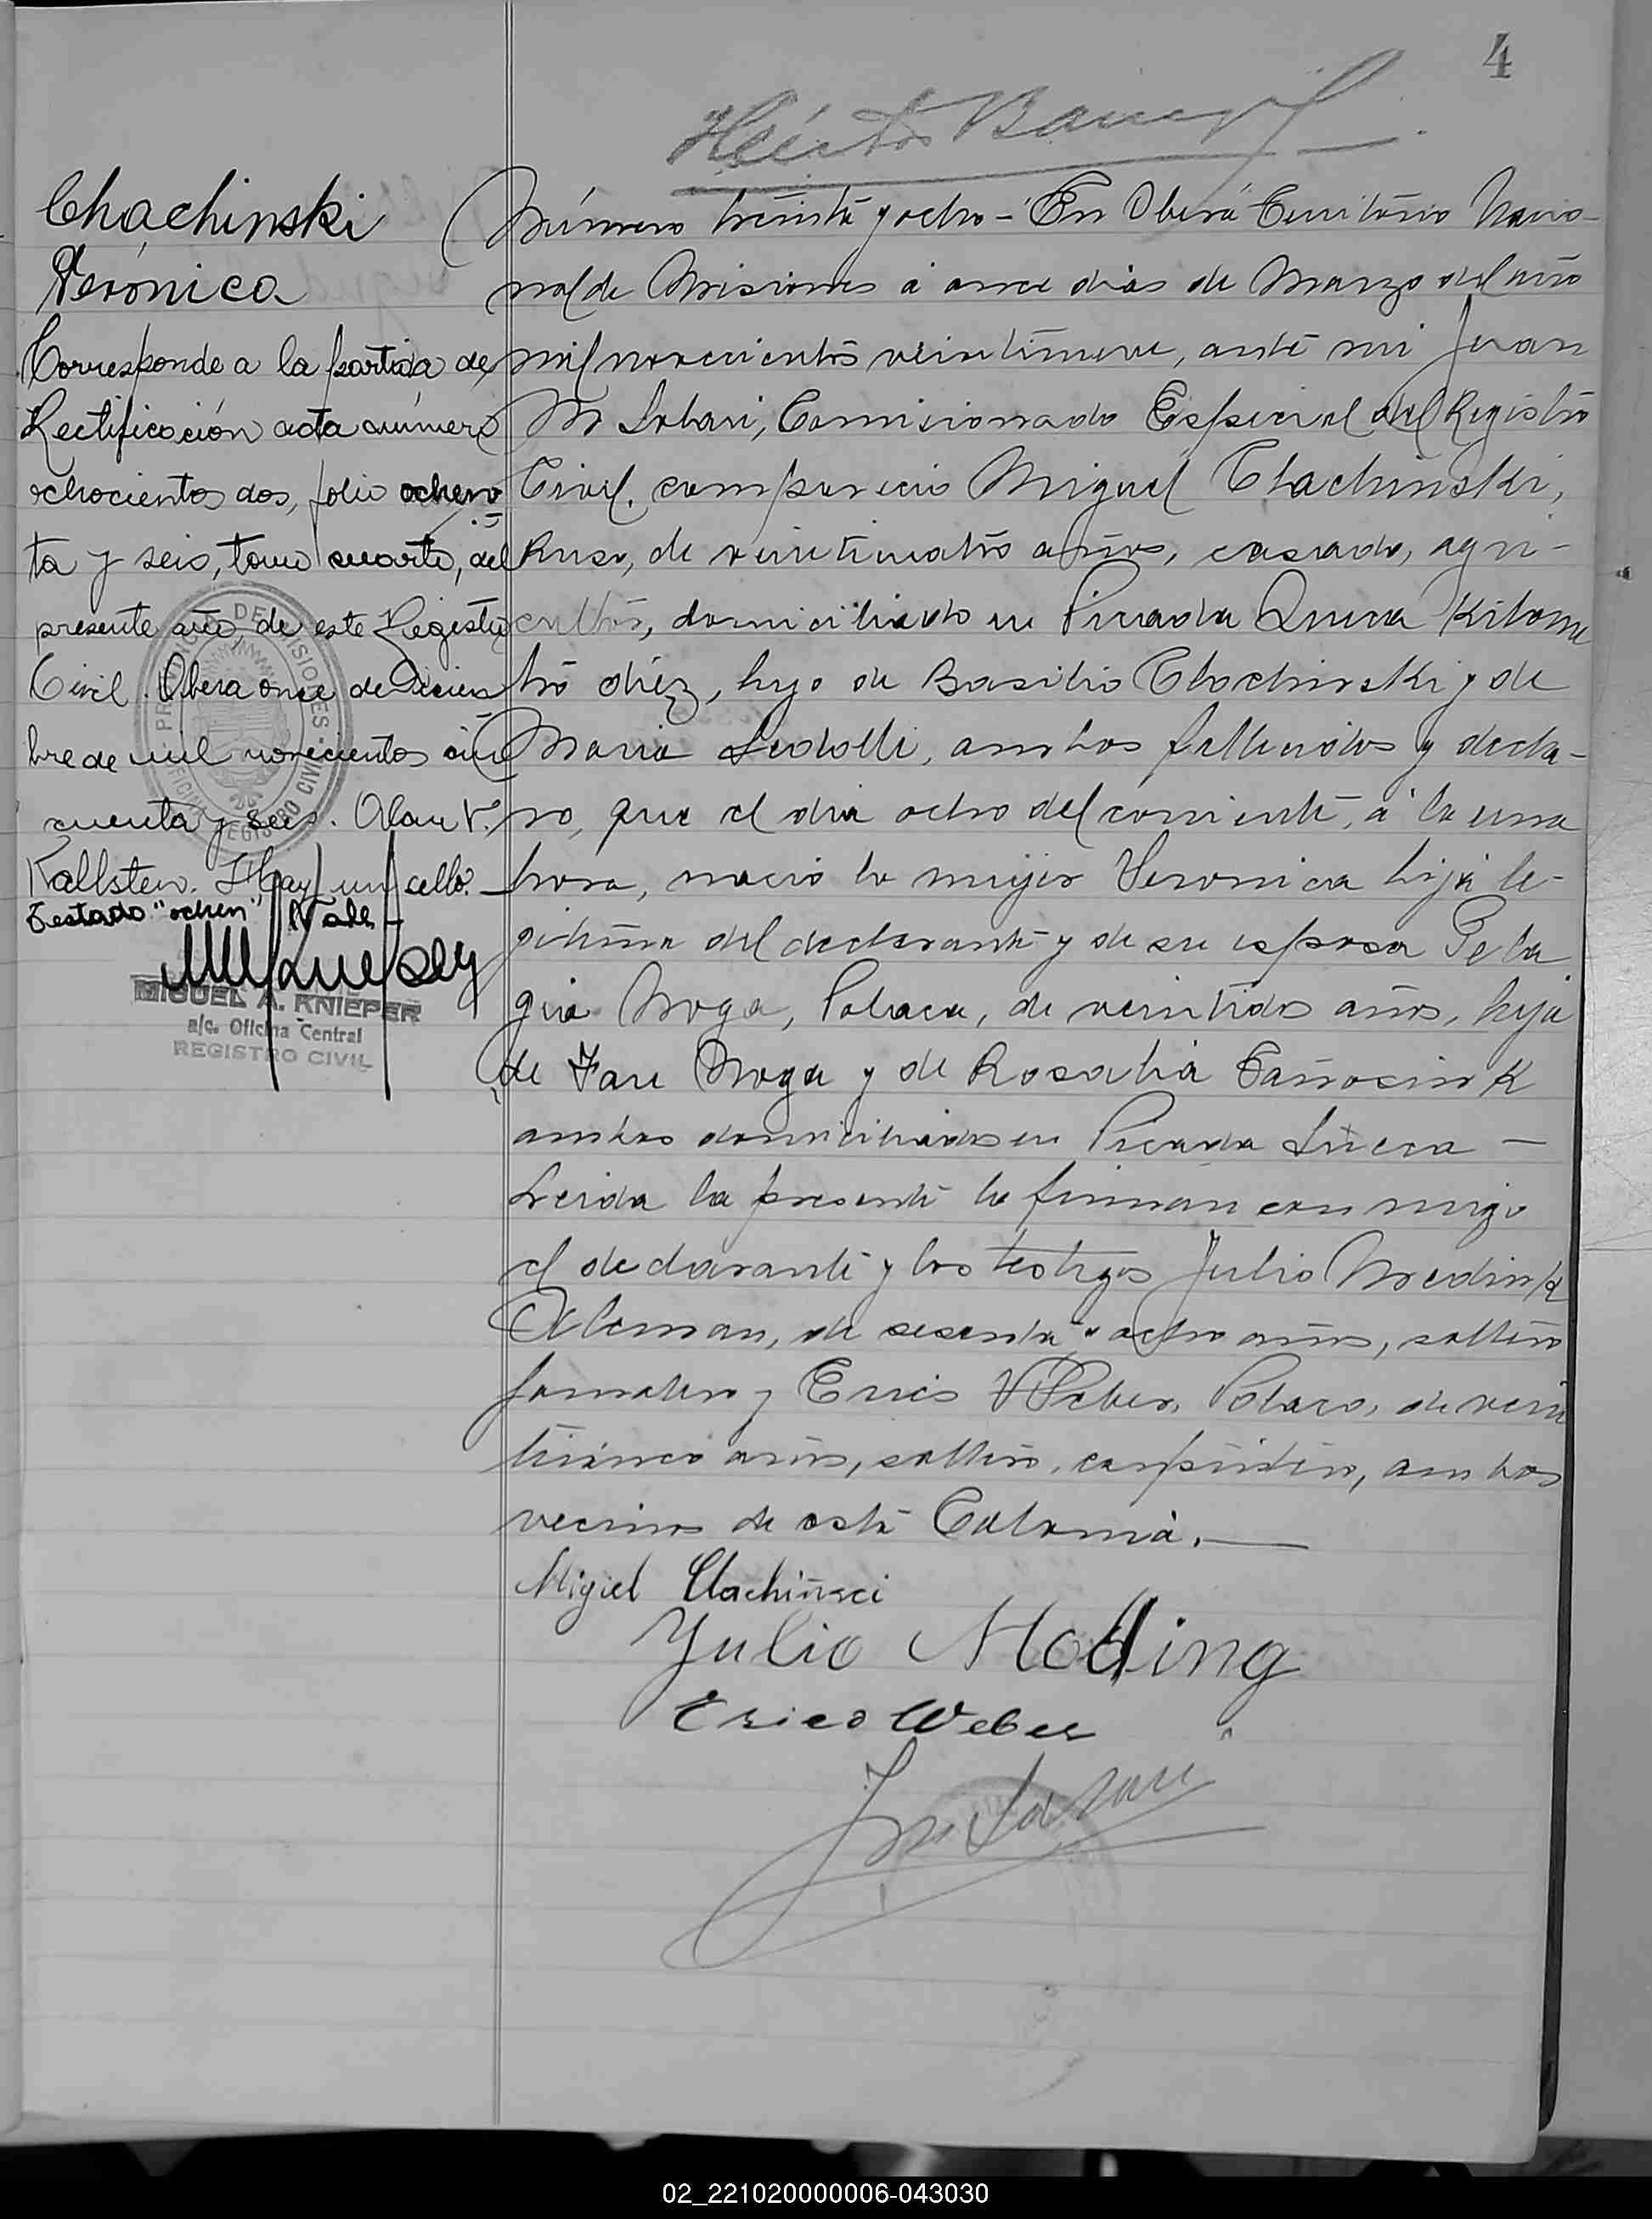 4
Héctor
Chachinski
Verónica
Corresponde a la partida de
Rectificación acta número
ochocientos dos, folio ochen
ta y seis, tomo cuarto, del
presente año, de este Registro
Civil. Oberá once de diciem
bre de mil novecientos cin
cuenta y seis. Olau V.
Kallsten. Hay un sello.
Testado "ochen" Vale
MIGUEL A. KNIEPER
a/c. Oficina Central
REGISTRO CIVIL
PROVINCIA DE MISIONES
OFICINA REGISTRO CIVIL
Número treinta y ocho - En Oberá Territorio Nacio-
nal de Misiones á once dias de Marzo del año
mil novecientos veintinueve, ante mi Juan
M Labari, Comisionado Especial del Registro
Civil. comparecio Miguel Chachinski,
Ruso, de veinticuatro años, casado, agri-
cultor, domiciliado en Picada Sueca Kilome
tro diéz, hijo de Basilio Chachinski y de
Maria, ambos fallecidos y decla-
ro, que el dia ocho del corriente, á la una
hora, nacio la mujer Veronica hija le-
gitima del declarante y de su esposa Pela
gia Noga, Polaca, de veintidos años, hija
de Jan Noga y de Rosalia
ambos domiciliados en Picada Sueca —
Leida la presente la firman con migo
el declarante y los testigos Julio Moedink
Aleman, de sesenta y ocho años, soltero
jornalero y Erico Weber, Polaco, de vein
ticinco años, soltero, carpintero, ambos
vecinos de esta Colonia. —
Migiel Chachinsci
Yulio Modling
Erico Weber
02_221020000006-043030